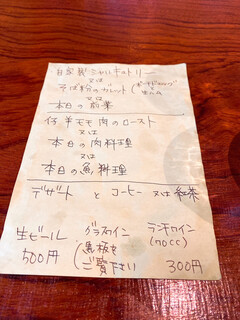 自家製シャルキュトリー
又は
そば粉のガレット
又は
本日の前菜
仔羊モモ肉のロースト
又は
本日の肉料理
又は
本日の魚料理
デザート と コーヒー 又は 紅茶
生ビール グラスワイン ランチワイン
500円 (黒板を (110cc)
ご覧下さい 300円